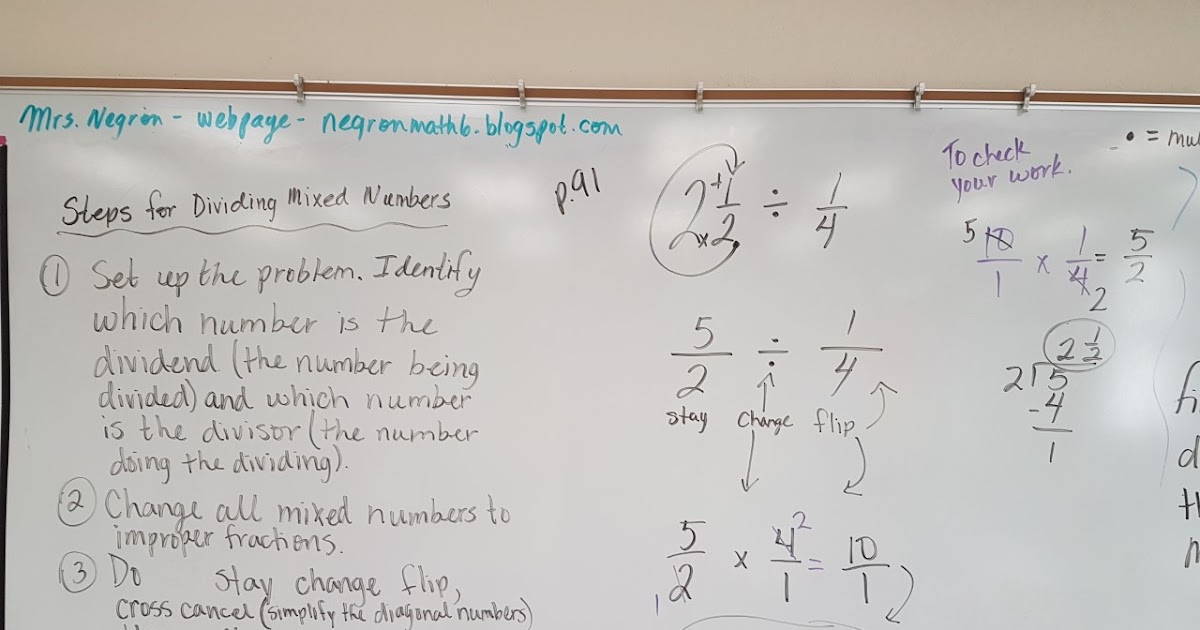 Mrs. Negron - webpage - negronmath6.blogspot.com
Steps for Dividing Mixed Numbers
p.91
① Set up the problem. Identify
which number is the
dividend (the number being
divided) and which number
is the divisor (the number
doing the dividing).
② Change all mixed numbers to
improper fractions.
③ Do stay change flip,
cross cancel (simplify the diagonal numbers)
2 + 1/2 x ÷ 1/4
5/2 ÷ 1/4
stay change flip
5/2 x 4/1 = 10/1
1 2
To check
your work.
10/1 x 1/4 = 5/2
5 2
2 1/2
2)5
-4
1
• =